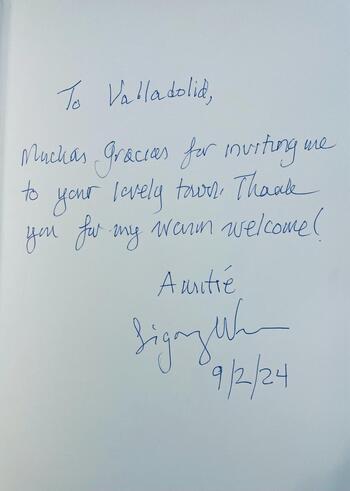 To Valladolid,
Muchas gracias for inviting me
to your lovely town. Thank
you for my warm welcome!
Amitié
9/2/24